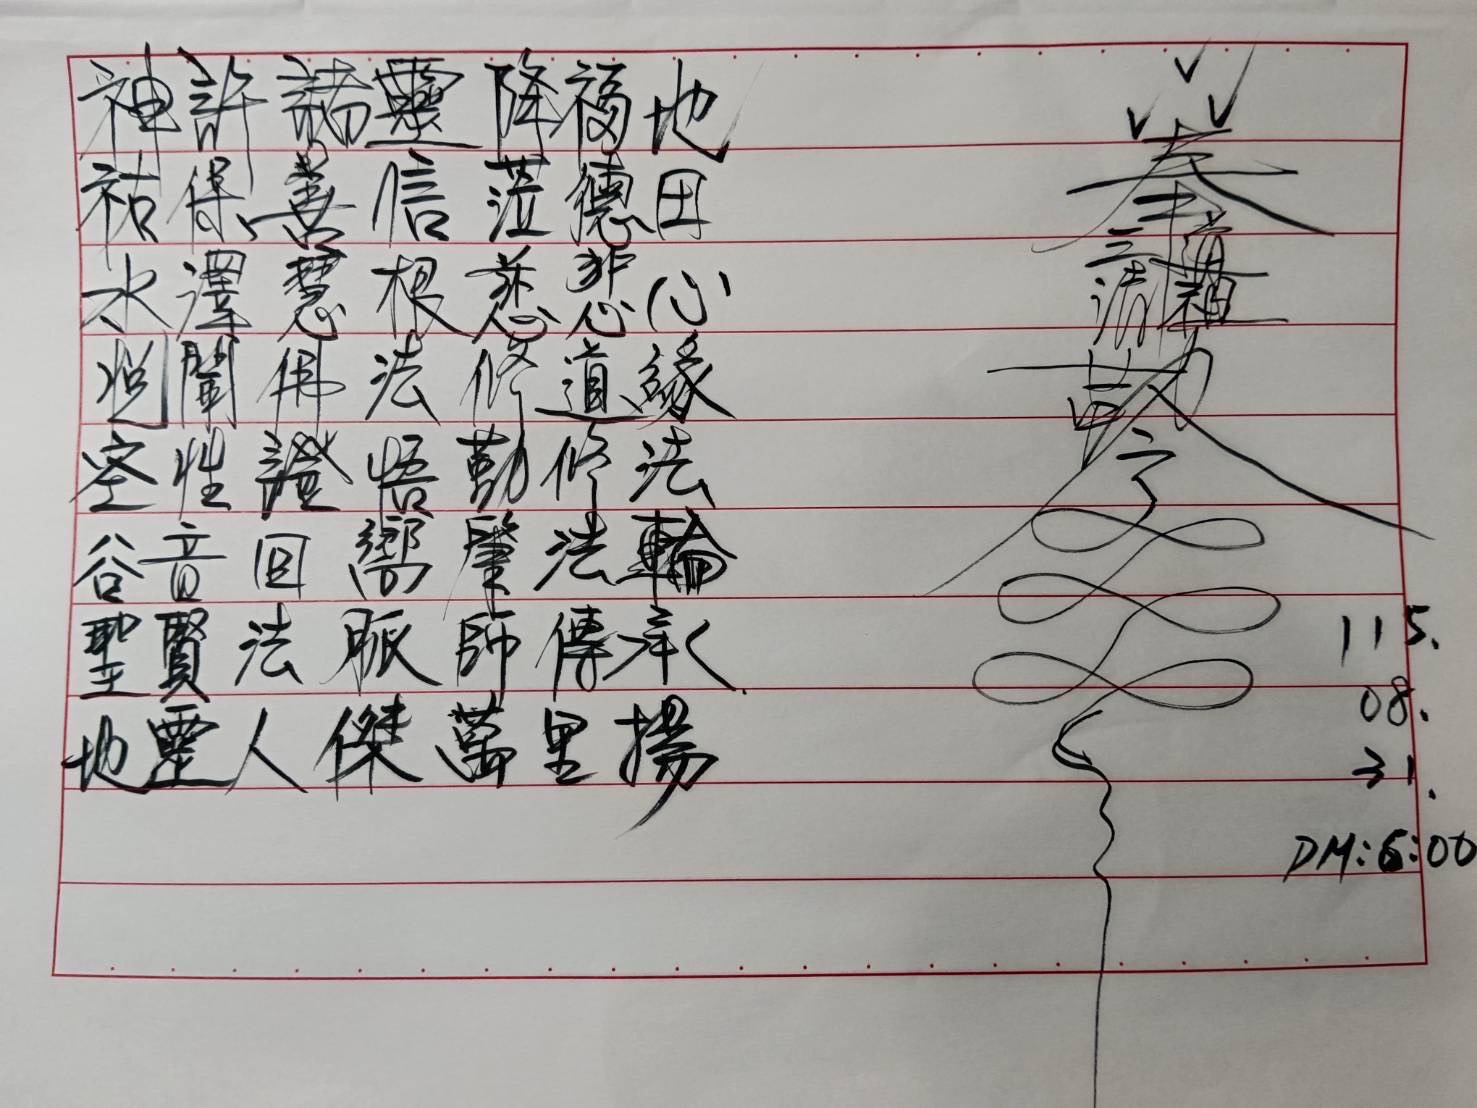 神許諸靈降福地
祐保善信蒞德田
水澤慧根慈悲心
闡佛法修道緣
空性證悟勤修法
谷音回嚮肇法輪
聖賢法脈師傳承
地靈人傑萬里揚
奉
三清
令
115.
08.
31.
PM:6:00